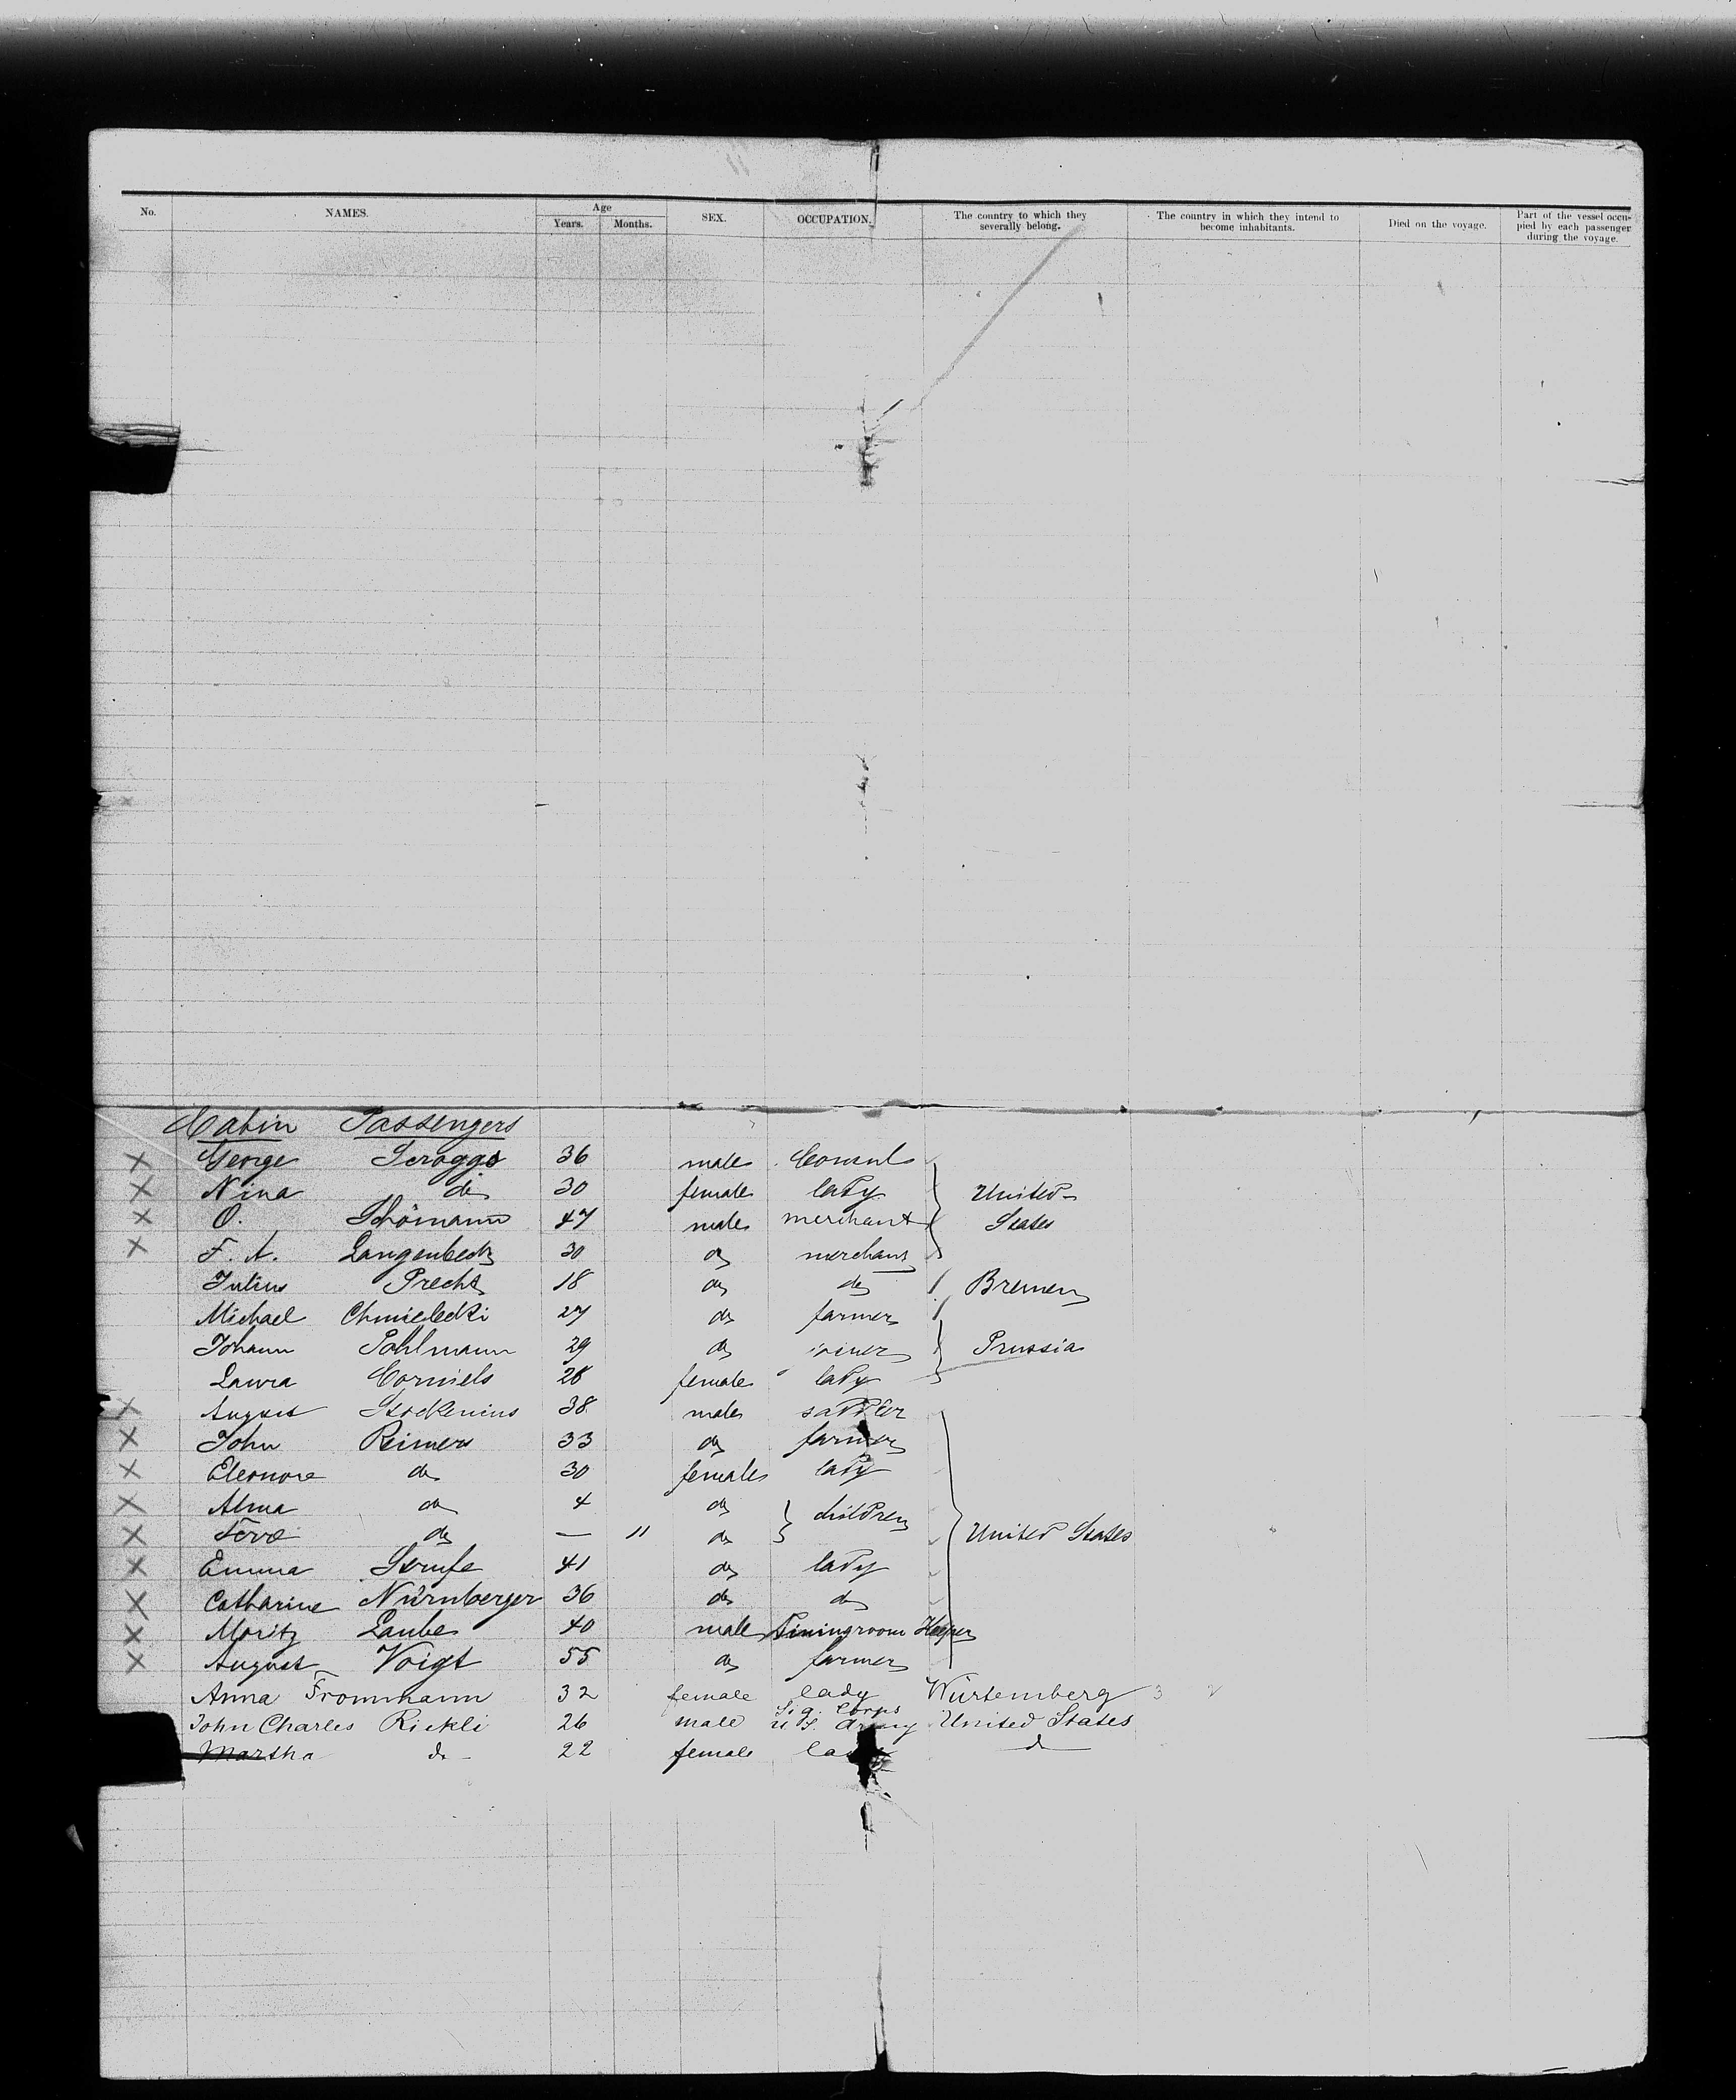 No. NAMES. Age Years. Months. SEX. OCCUPATION. The country to which they severally belong. The country in which they intend to become inhabitants. Died on the voyage. Part of the vessel occupied by each passenger during the voyage.
Cabin Passengers
X George Scroggs 36 male Consul
X Nina do 30 female lady United
X O. Thömann 47 male merchant States
X F. A. Langenbeck 30 do merchant
Julius Precht 18 do do Bremen
Michael Chmielecki 27 do farmer
Johann Pohlmann 29 do joiner Prussia
Laura Corniels 28 female lady
X August Stockenius 38 male sattler
X John Reimers 33 do farmer
X Eleonore do 30 female lady
X Alma do 4 do children
X do — 11 do United States
X Emma Strufe 41 do lady
X Catharine Nürnberger 36 do do
X Moritz Laube 40 male Diningroom Keeper
X August Voigt 55 do farmer
Anna Frommann 32 female lady Würtemberg 3
John Charles Rickli 26 male Sig. Corps U S. Army United States
Martha do 22 female lady do